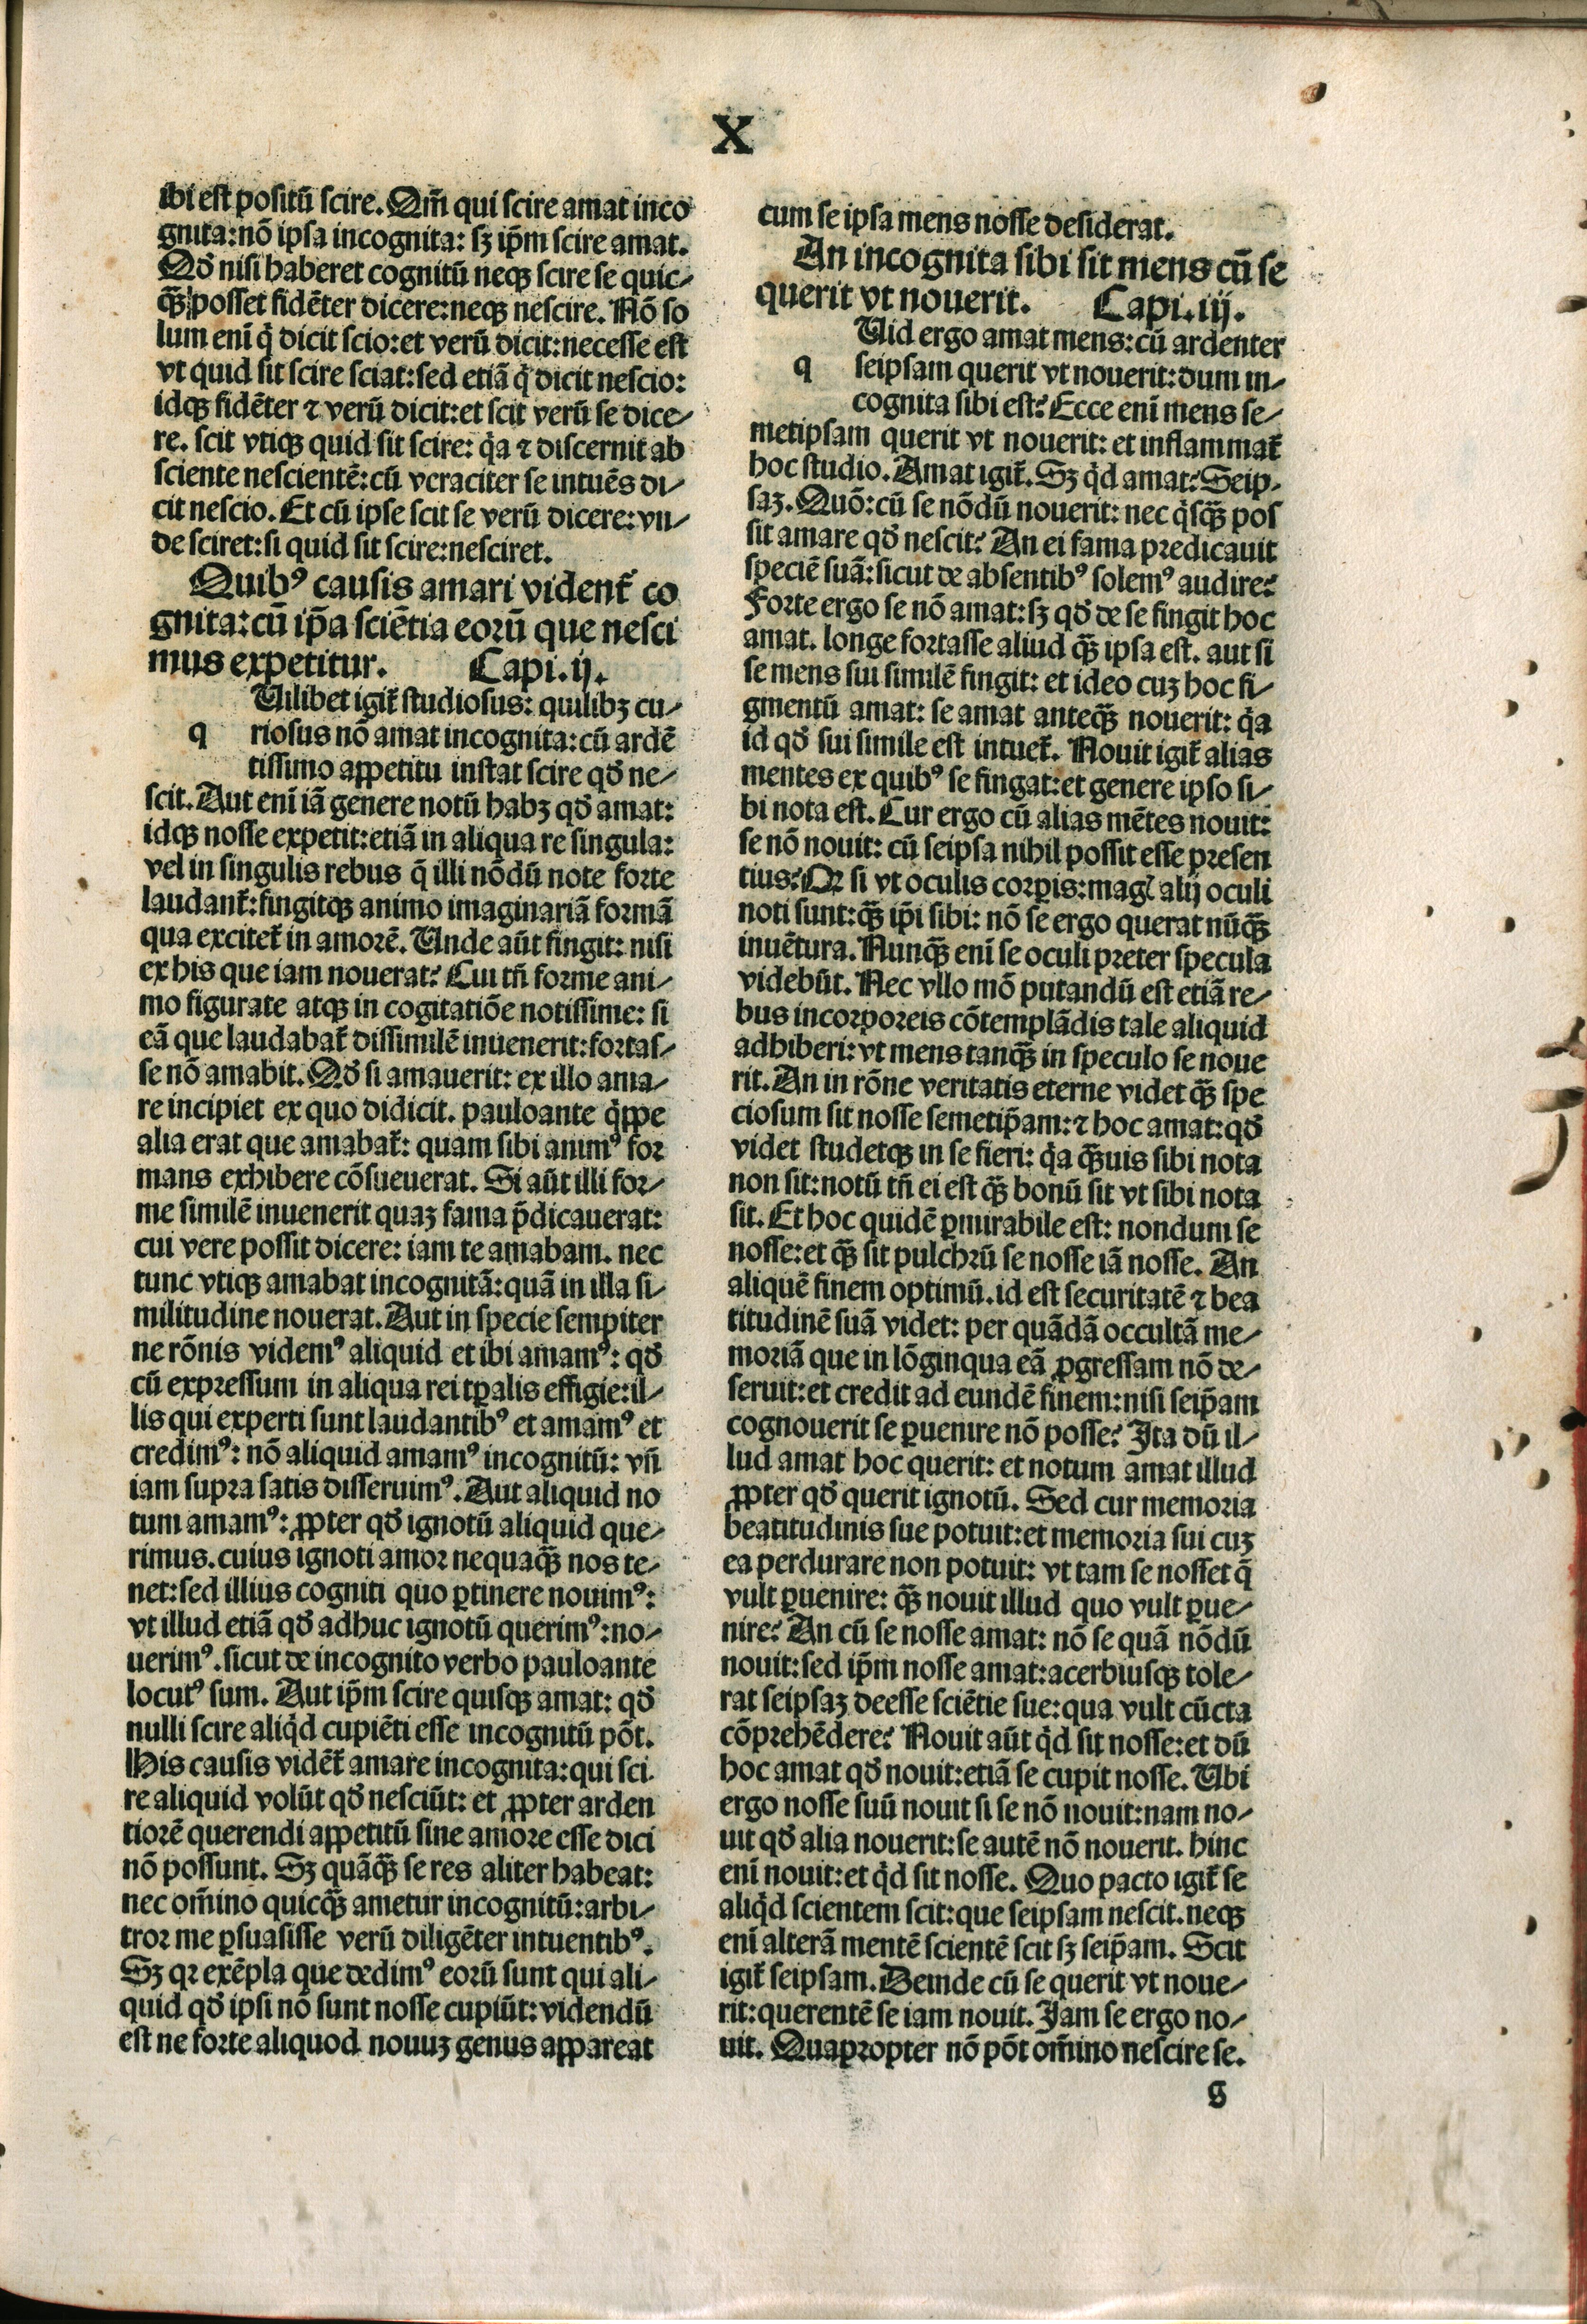 X
ibi est positū scire. Qm̄ qui scire amat inco
gnita: nō ipsa incognita: sꝫ ip̄m scire amat.
Qđ nisi haberet cognitū neqꝫ scire se quic-
qꝫ̄ posset fidēter dicere: neqꝫ nescire. Nō so
lum enī q̇ dicit scio: et verū dicit: necesse est
vt quid sit scire sciat: sed etiā q̇ dicit nescio:
idqꝫ fidēter ⁊ verū dicit: et scit verū se dice-
re. scit vtiqꝫ quid sit scire: q̇a ⁊ discernit ab
sciente nescientē: cū veraciter se intuēs di-
cit nescio. Et cū ipse scit se verū dicere: vn-
de sciret: si quid sit scire: nesciret.
Quibꝰ causis amari vident᷑ co
gnita: cū ip̄a sciētia eorū que nesci
mus expetitur. Capi. ij.
Uilibet igit᷑ studiosus: quilibꝫ cu-
q riosus nō amat incognita: cū ardē
tissimo appetitu instat scire qđ ne-
scit. Aut enī iā genere notū habꝫ qđ amat:
idqꝫ nosse expetit: etiā in aliqua re singula:
vel in singulis rebus q̄ illi nōdū note forte
laudant᷑: fingitqꝫ animo imaginariā formā
qua excitet᷑ in amorē. Unde aūt fingit: nisi
ex his que iam nouerat? Cui tn̄ forme ani-
mo figurate atqꝫ in cogitatiōe notissime: si
eā que laudabat᷑ dissimilē inuenerit: fortas-
se nō amabit. Qđ si amauerit: ex illo ama-
re incipiet ex quo didicit. pauloante q̇ppe
alia erat que amabat᷑: quam sibi animꝰ for
mans exhibere cōsueuerat. Si aūt illi for-
me similē inuenerit quaꝫ fama p̄dicauerat:
cui vere possit dicere: iam te amabam. nec
tunc vtiqꝫ amabat incognitā: quā in illa si-
militudine nouerat. Aut in specie sempiter
ne rōnis videmꝰ aliquid et ibi amamꝰ: qđ
cū expressum in aliqua rei tꝑalis effigie: il-
lis qui experti sunt laudantibꝰ et amamꝰ et
credimꝰ: nō aliquid amamꝰ incognitū: vn̄
iam supra satis disseruimꝰ. Aut aliquid no
tum amamꝰ: ꝓpter qđ ignotū aliquid que-
rimus. cuius ignoti amor nequaqꝫ̄ nos te-
net: sed illius cogniti quo ꝑtinere nouimꝰ:
vt illud etiā qđ adhuc ignotū querimꝰ: no-
uerimꝰ. sicut de incognito verbo pauloante
locutꝰ sum. Aut ip̄m scire quisqꝫ amat: qđ
nulli scire aliq̇d cupiēti esse incognitū pōt.
His causis vidēt᷑ amare incognita: qui sci-
re aliquid volūt qđ nesciūt: et ꝓpter arden
tiorē querendi appetitū sine amore esse dici
nō possunt. Sꝫ quāqꝫ̄ se res aliter habeat:
nec om̄ino quicqꝫ̄ ametur incognitū: arbi-
tror me ꝑsuasisse verū diligēter intuentibꝰ.
Sꝫ qꝛ exēpla que dedimꝰ eorū sunt qui ali-
quid qđ ipsi nō sunt nosse cupiūt: videndū
est ne forte aliquod nouuꝫ genus appareat
cum se ipsa mens nosse desiderat.
An incognita sibi sit mens cū se
querit vt nouerit. Capi. iij.
Uid ergo amat mens: cū ardenter
q seipsam querit vt nouerit: dum in-
cognita sibi est? Ecce enī mens se-
metipsam querit vt nouerit: et inflammat᷑
hoc studio. Amat igit᷑. Sꝫ q̇d amat? Seip-
saꝫ. Quō: cū se nōdū nouerit: nec q̇sqꝫ̄ pos
sit amare qđ nescit? An ei fama predicauit
speciē suā: sicut de absentibꝰ solemꝰ audire?
Forte ergo se nō amat: sꝫ qđ de se fingit hoc
amat. longe fortasse aliud qꝫ̄ ipsa est. aut si
se mens sui similē fingit: et ideo cuꝫ hoc fi-
gmentū amat: se amat anteqꝫ̄ nouerit: q̇a
id qđ sui simile est intuet᷑. Nouit igit᷑ alias
mentes ex quibꝰ se fingat: et genere ipso si-
bi nota est. Cur ergo cū alias mētes nouit:
se nō nouit: cū seipsa nihil possit esse presen
tius? Qꝛ si vt oculis corꝑis: magꝭ alij oculi
noti sunt: qꝫ̄ ip̄i sibi: nō se ergo querat nūqꝫ̄
inuētura. Nunqꝫ̄ enī se oculi preter specula
videbūt. Nec vllo mō putandū est etiā re-
bus incorporeis cōtemplādis tale aliquid
adhiberi: vt mens tanqꝫ̄ in speculo se noue
rit. An in rōne veritatis eterne videt qꝫ̄ spe
ciosum sit nosse semetip̄am: ⁊ hoc amat: qđ
videt studetqꝫ in se fieri: q̇a qꝫ̄uis sibi nota
non sit: notū tn̄ ei est qꝫ̄ bonū sit vt sibi nota
sit. Et hoc quidē ꝑmirabile est: nondum se
nosse: et qꝫ̄ sit pulchrū se nosse iā nosse. An
aliquē finem optimū. id est securitatē ⁊ bea
titudinē suā videt: per quādā occultā me-
moriā que in lōginqua eā ꝓgressam nō de-
seruit: et credit ad eundē finem: nisi seip̄am
cognouerit se ꝑuenire nō posse? Ita dū il-
lud amat hoc querit: et notum amat illud
ꝓpter qđ querit ignotū. Sed cur memoria
beatitudinis sue potuit: et memoria sui cuꝫ
ea perdurare non potuit: vt tam se nosset q̄
vult ꝑuenire: qꝫ̄ nouit illud quo vult ꝑue-
nire? An cū se nosse amat: nō se quā nōdū
nouit: sed ip̄m nosse amat: acerbiusqꝫ tole-
rat seipsaꝫ deesse sciētie sue: qua vult cūcta
cōprehēdere? Nouit aūt q̇d sit nosse: et dū
hoc amat qđ nouit: etiā se cupit nosse. Ubi
ergo nosse suū nouit si se nō nouit: nam no-
uit qđ alia nouerit: se autē nō nouerit. hinc
enī nouit: et q̇d sit nosse. Quo pacto igit᷑ se
aliq̇d scientem scit: que seipsam nescit. neqꝫ
enī alterā mentē scientē scit sꝫ seip̄am. Scit
igit᷑ seipsam. Deinde cū se querit vt noue-
rit: querentē se iam nouit. Iam se ergo no-
uit. Quapropter nō pōt om̄ino nescire se.